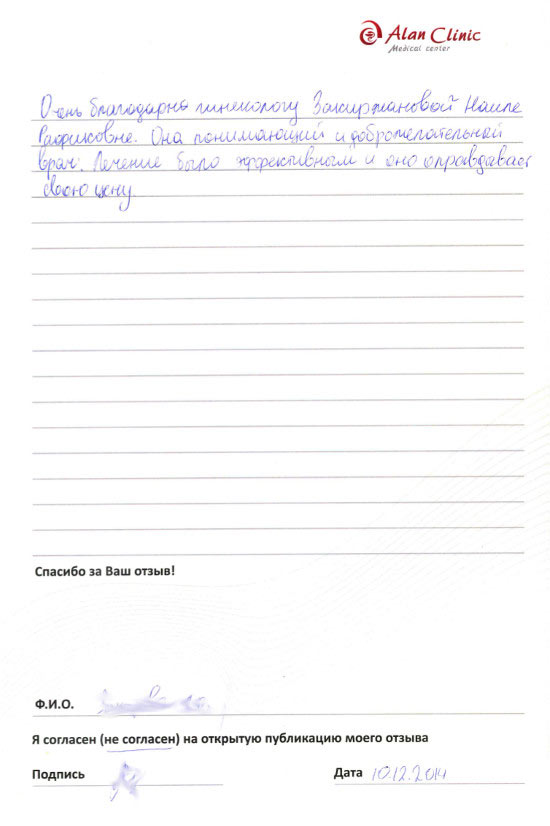 Alan Clinic
Medical center
Очень благодарна гинекологу Закиржановой Наиле
Рафиковне. Она понимающий и доброжелательный
врач. Лечение было эффективным и оно оправдавает
свою цену.
Спасибо за Ваш отзыв!
Ф.И.О.
Я согласен (не согласен) на открытую публикацию моего отзыва
Подпись
Дата 10.12.2014